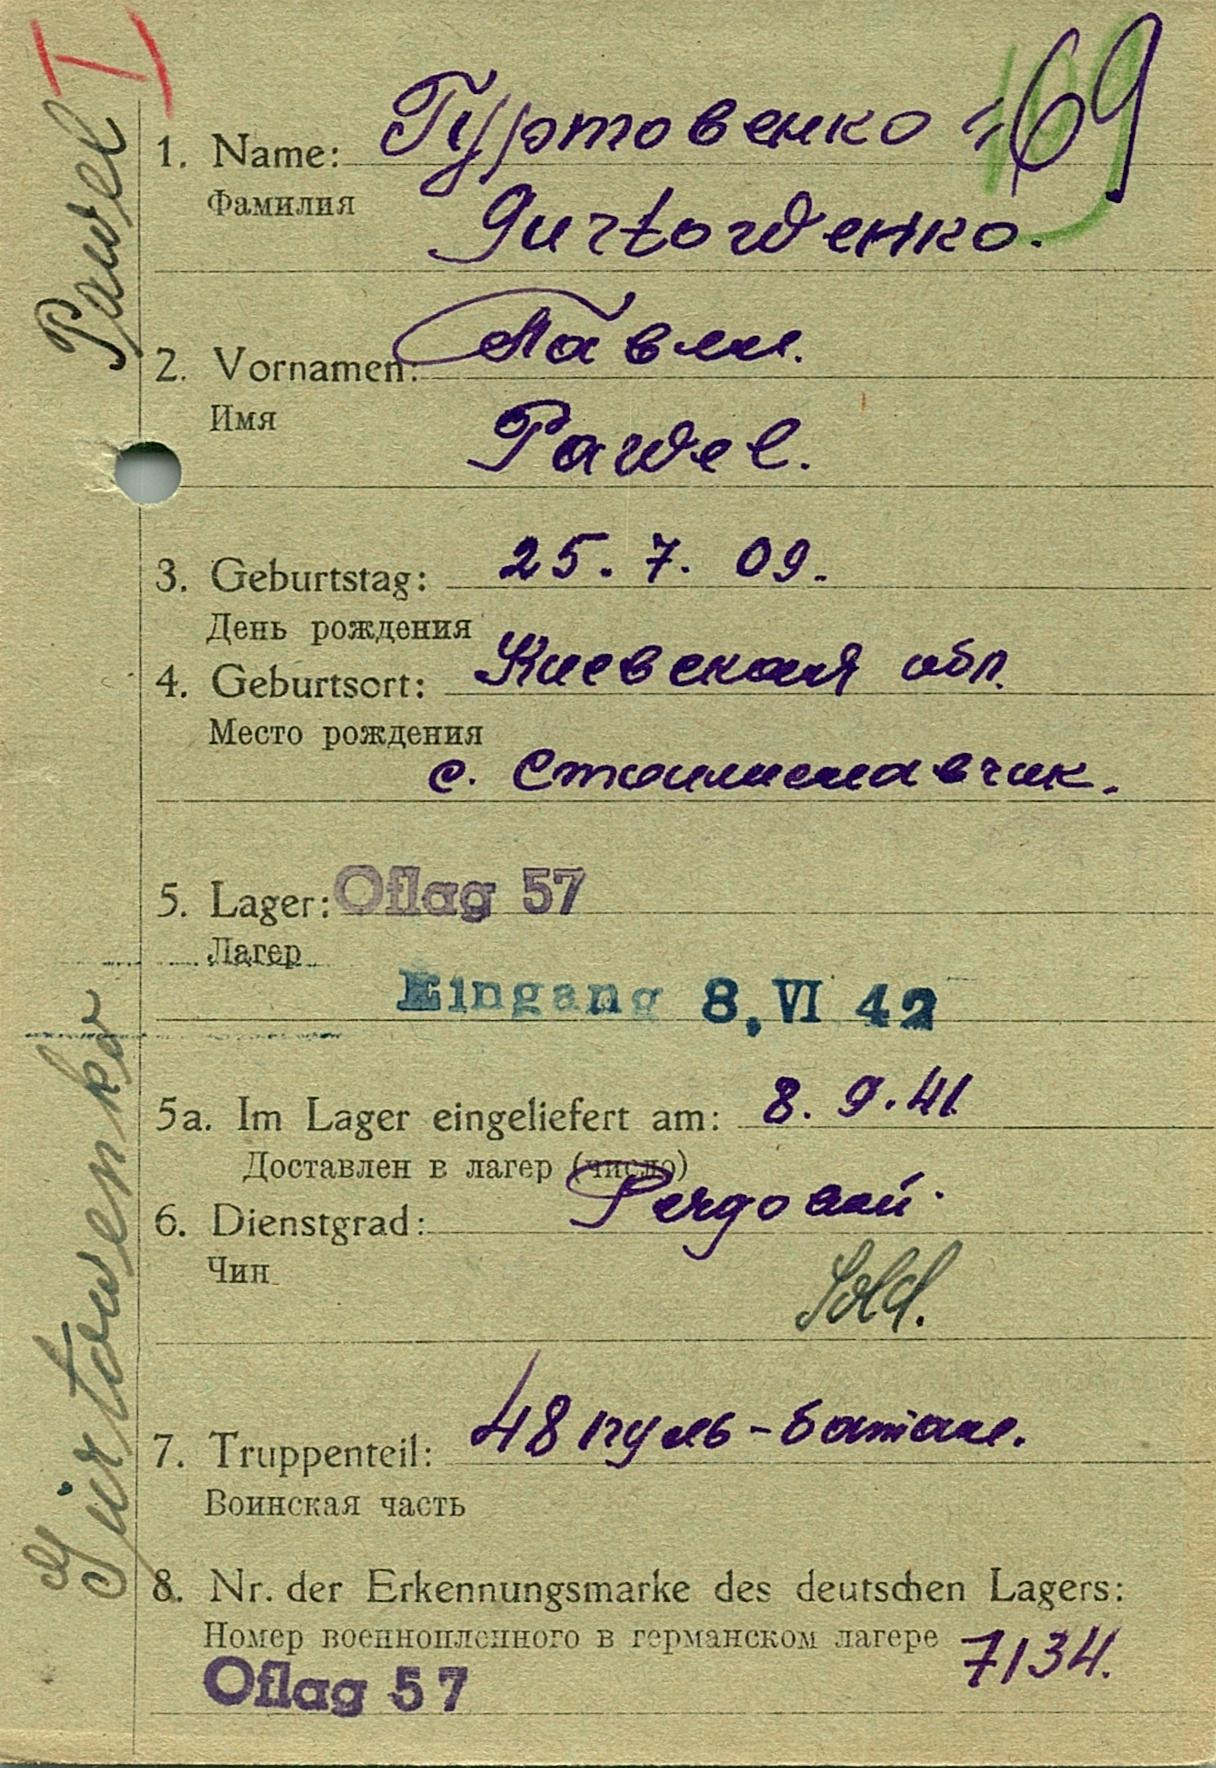 I
1. Name: Гуртовенко 169
Фамилия Gurtowенко.
2. Vornamen: Павел.
Имя
Pawel.
3. Geburtstag: 25. 7. 09.
День рождения
4. Geburtsort: Киевская обл.
Место рождения
с.
5. Lager: Oflag 57
Лагер
Eingang 8. VI 42
5a. Im Lager eingeliefert am: 8. 9. 41
Доставлен в лагер (число)
6. Dienstgrad:
Чин
Sold.
7. Truppenteil: 48 пуль-батал.
Воинская часть
8. Nr. der Erkennungsmarke des deutschen Lagers:
Номер военнопленного в германском лагере 7134.
Oflag 57
Gurtowenko Pawel